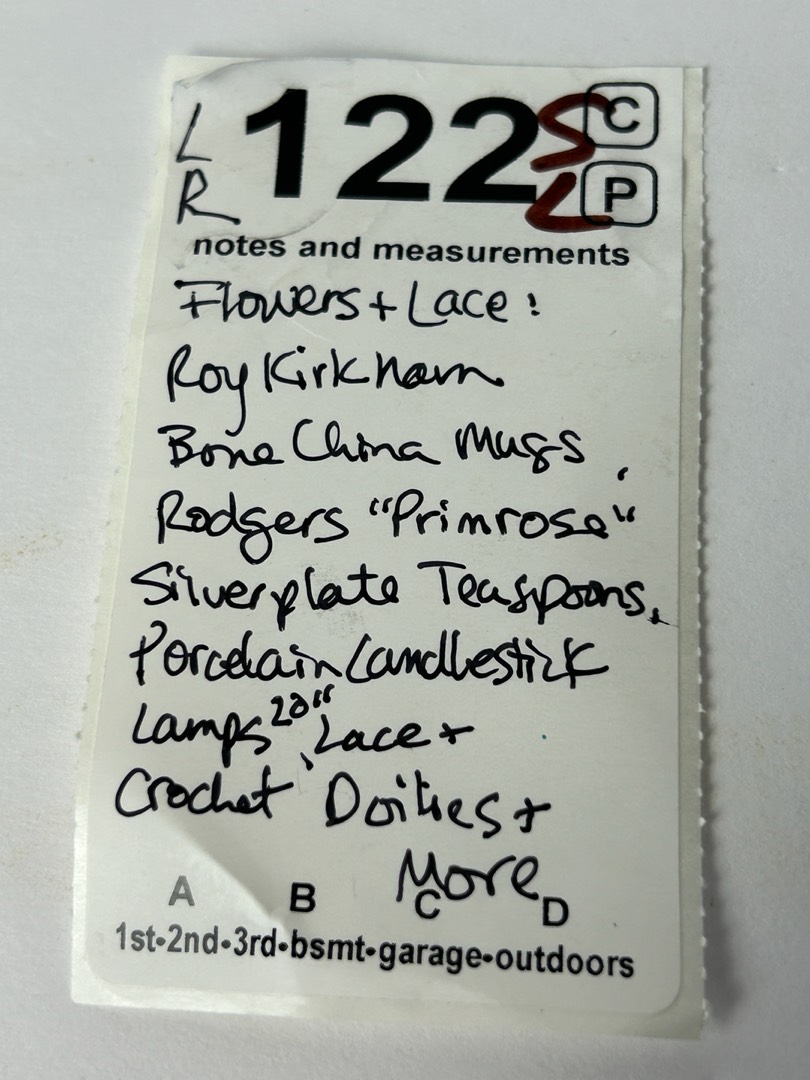 L 122 S C
R L P
notes and measurements
Flowers + Lace:
Roy Kirkham
Bone China Mugs,
Rodgers "Primrose"
Silverplate Teaspoons,
Porcelain Candlestick
Lamps 20", Lace +
Crochet Doilies +
More
A B C D
1st•2nd•3rd•bsmt•garage•outdoors